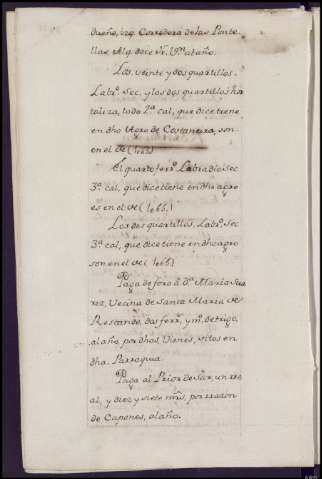 dueño, izq. Corredera de las Ponte-
llas. Alq. doce rr. Vn. al año.
Los veinte y dos quartillos
Labr.o Sec. y los dos quartillos hor
taliza, todo 2.a cal, que dice tiene
en dho Agro de Costaneira, son
en el de (1665)
El quarto ferr.o Labradio sec.
3.a cal, que dice tiene en dho agro
es en el de (1665)
Los dos quartillos, Labr.o Sec
3.a cal, que dice tiene en dho agro
son en el de (1665)
Paga de foro â D.a Maria Sua
rez, Vecina de Santa Maria de
Restande, dos ferr.s y m.o de trigo,
al año, por dhos Vienes, sitos en
dha. Parroquia.
Paga al Prior de Sar, un rre
al, y diez y siete mrs, por rrazon
de Capones, al año.